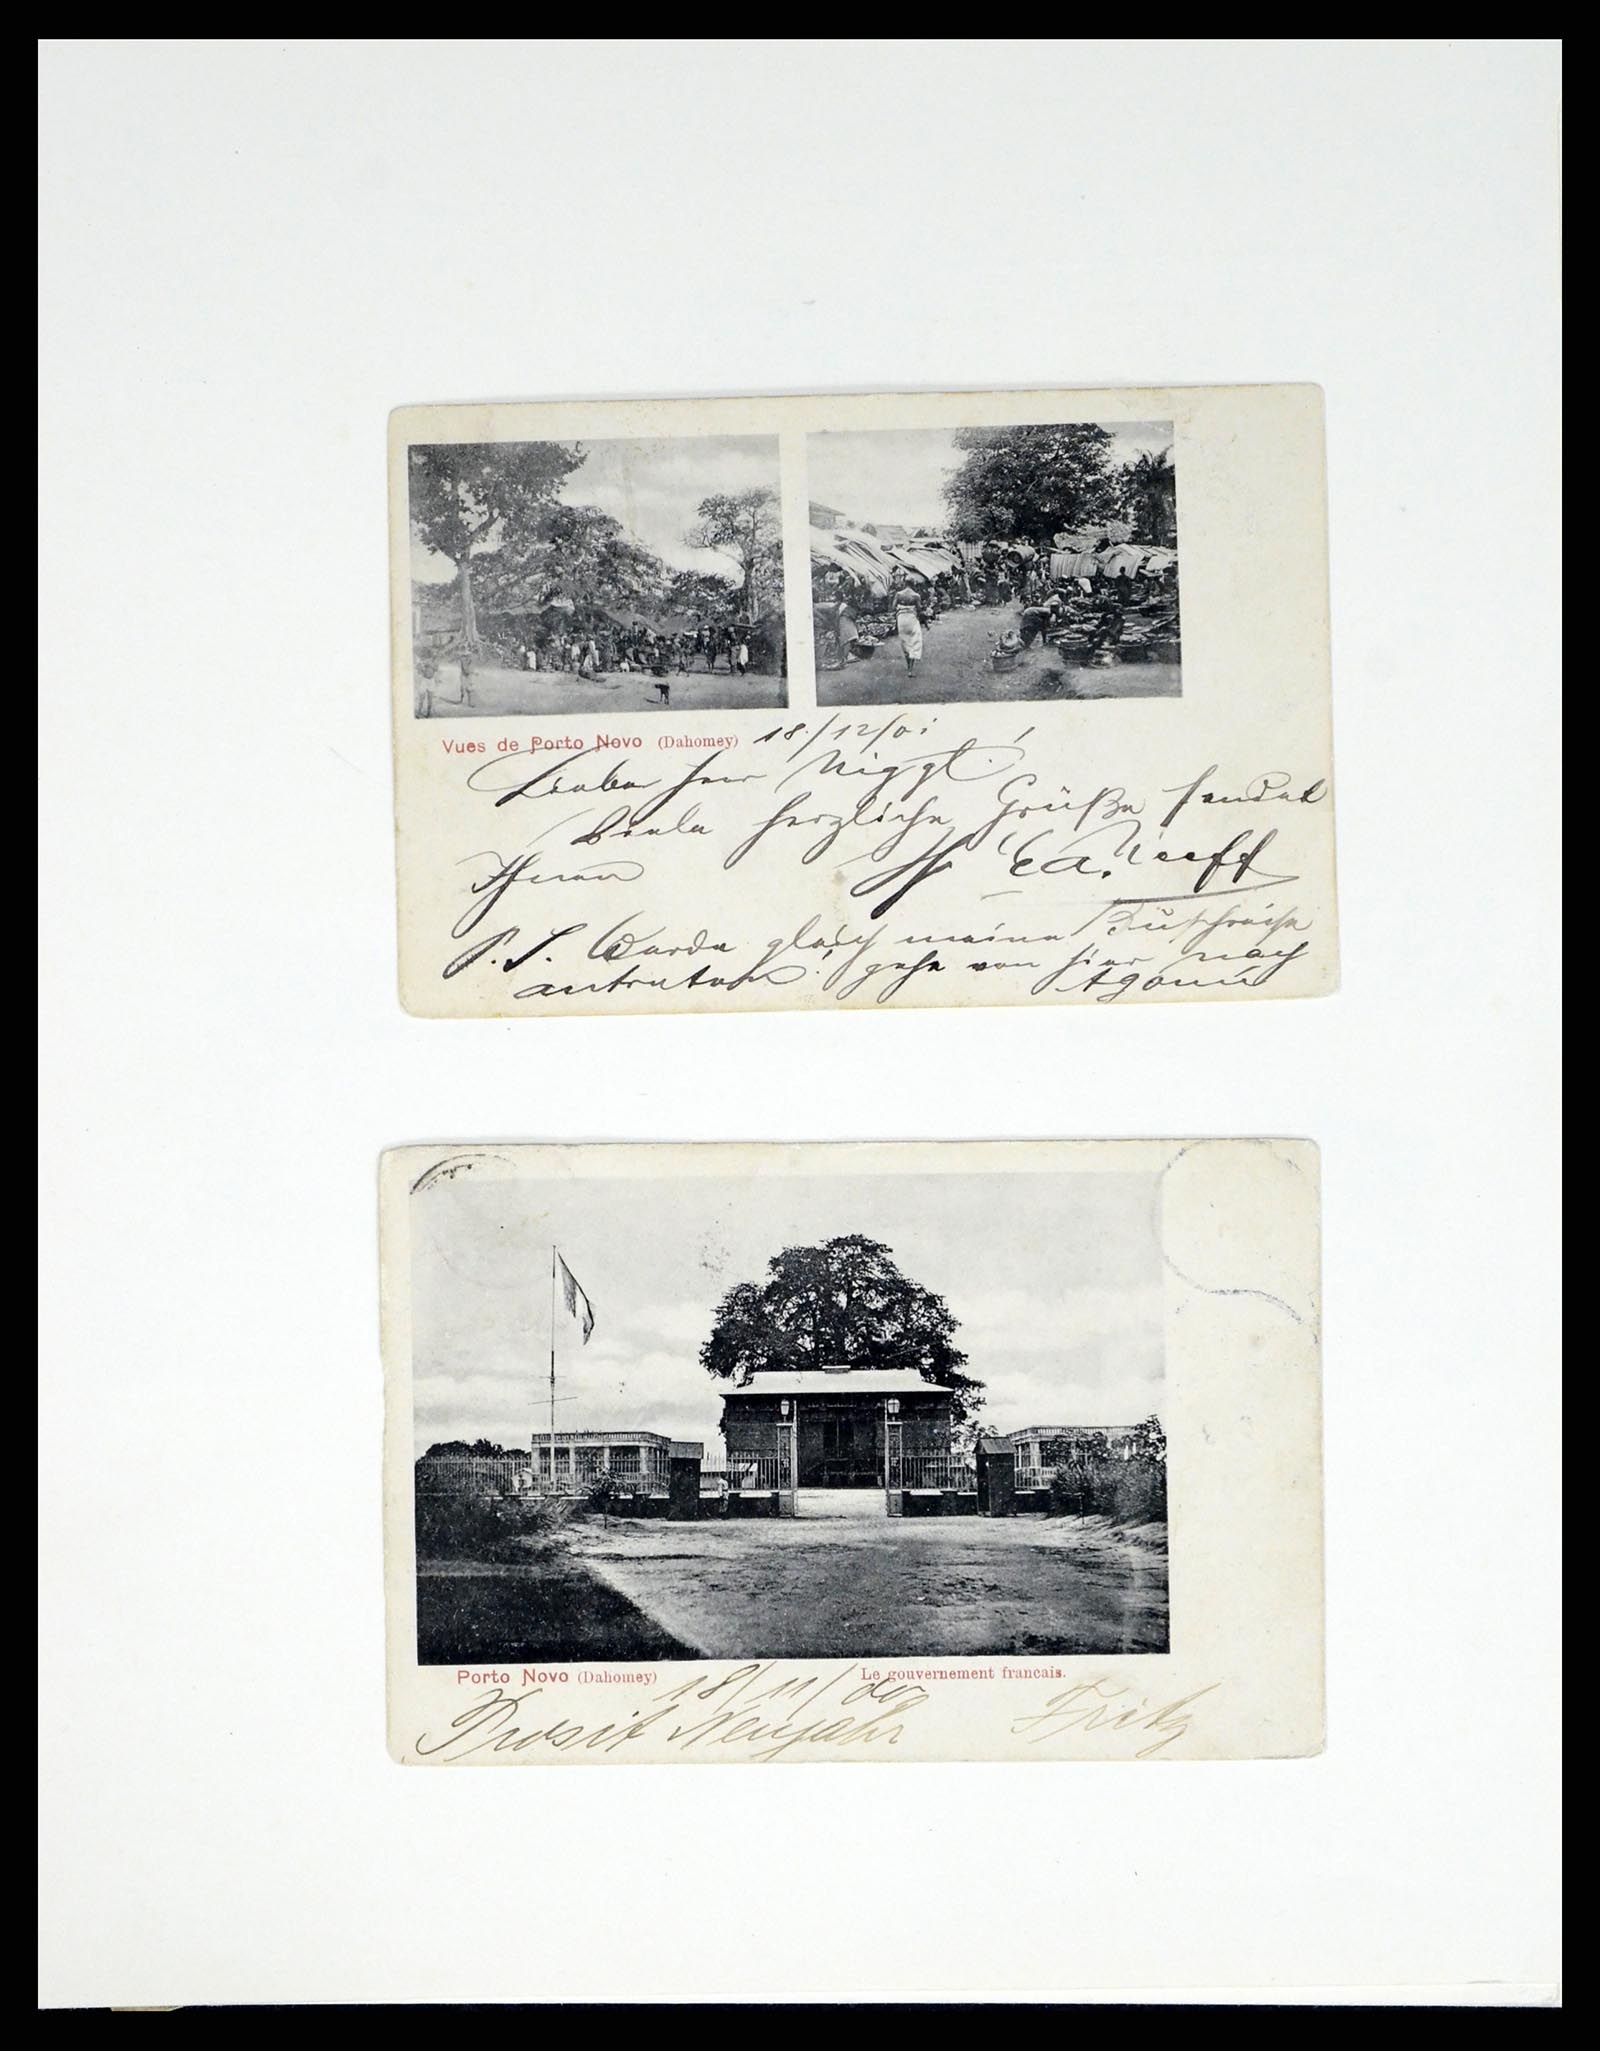 Vues de Porto Novo (Dahomey) 18/12/01
Lieber Herr Niggl!
Viele herzliche Grüße sendet
Ihnen
P. S. Werde gleich meine Rückreise
antreten! gehe von hier nach
Agoué
Porto Novo (Dahomey) Le gouvernement francais.
18/11/
Prosit Neujahr Fritz